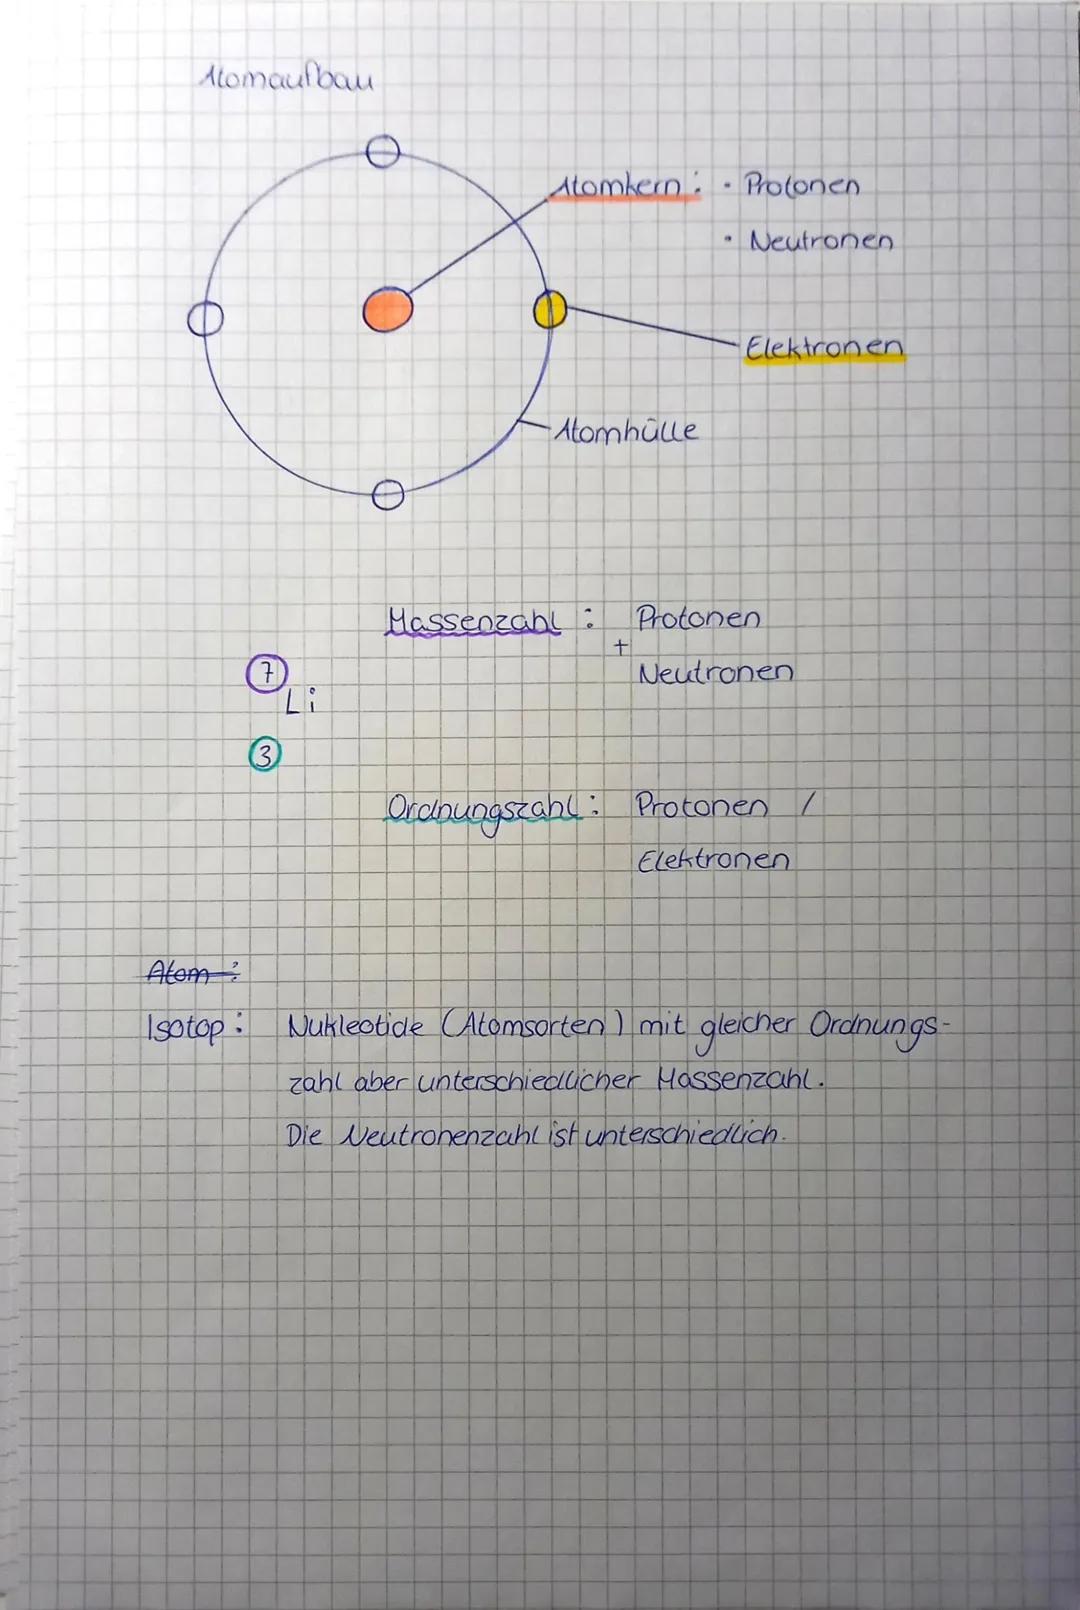 Atomaufbau
Atomkern: • Protonen
• Neutronen
Elektronen
Atomhülle
Massenzahl : Protonen
+
Neutronen
7
Li
3
Ordnungszahl: Protonen /
Elektronen
Atom:
Isotop: Nukleotide (Atomsorten) mit gleicher Ordnungs-
zahl aber unterschiedlicher Massenzahl.
Die Neutronenzahl ist unterschiedlich.